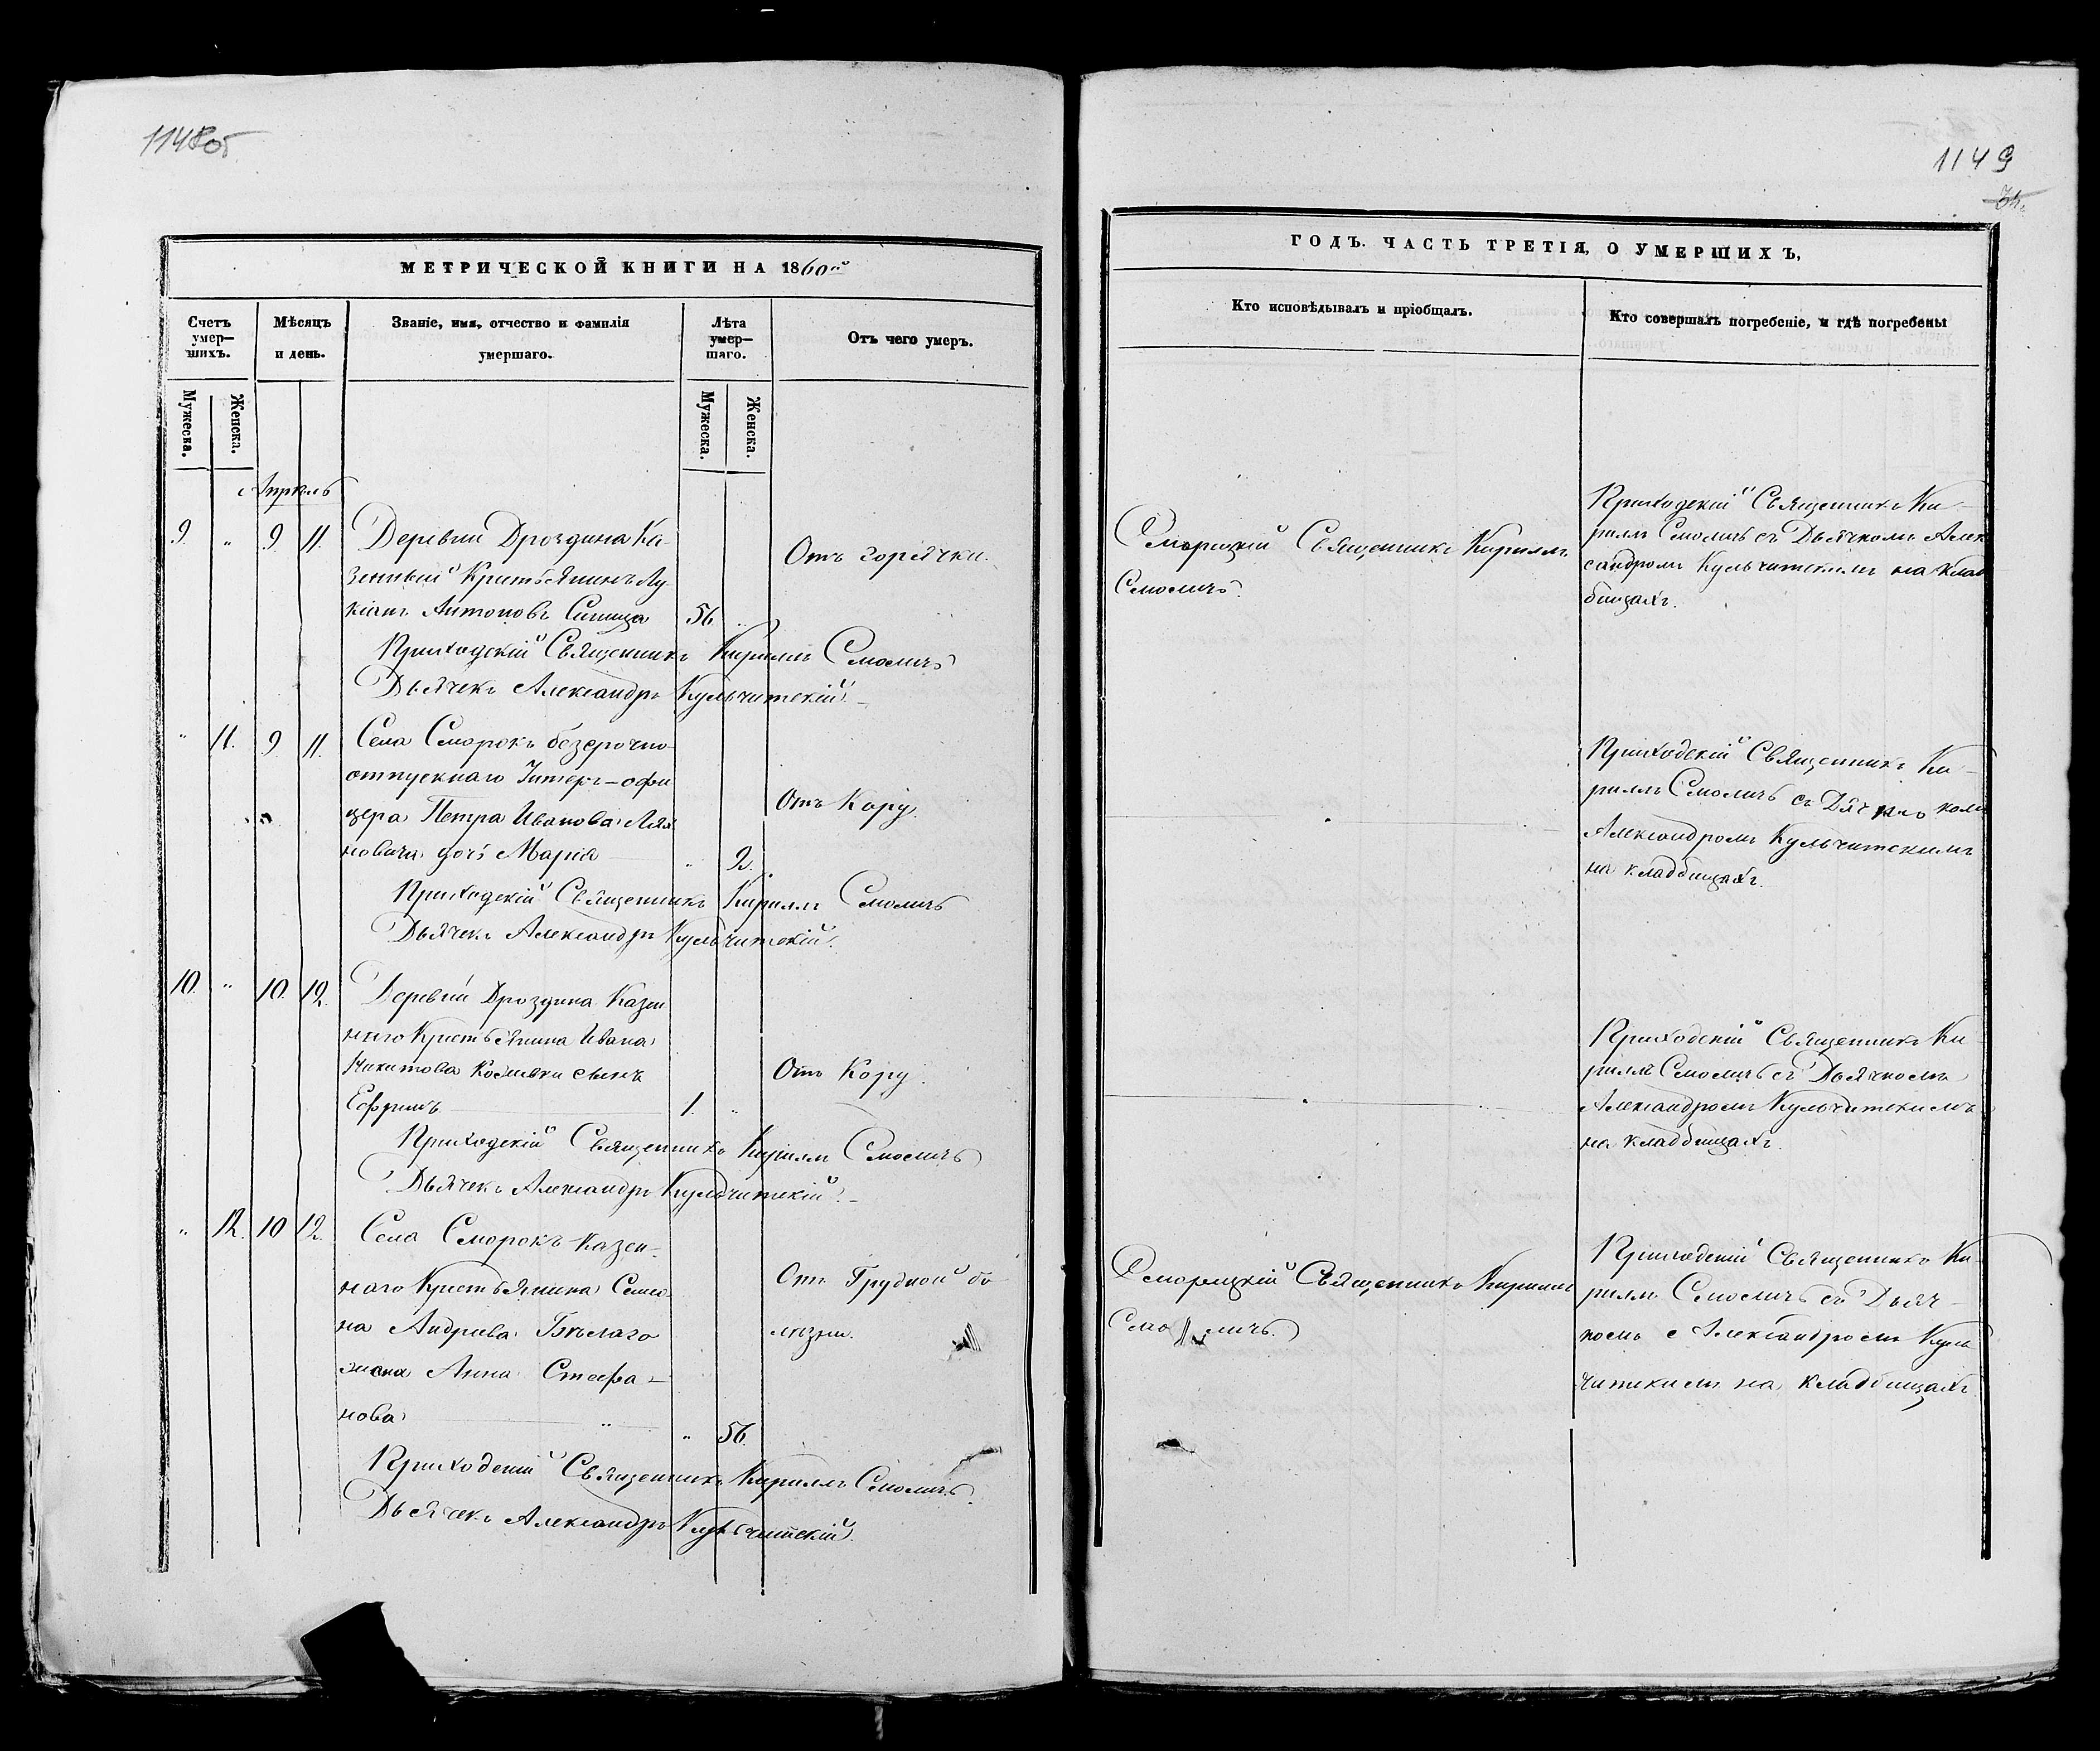 1148об
МЕТРИЧЕСКОЙ КНИГИ НА 1860й
Счетъ умер—шихъ.
Мѣсяцъ и день.
Званіе, имя, отчество и фамилія умершаго.
Лѣта умер—шаго.
Отъ чего умеръ.
Мужеска.
Женска.
Мужеска.
Женска.
Апрель
9. „ 9 11. Деревни Дроздина Ка-
зенный Крестьянинъ Лу-
кіанъ Антоновъ Синица 56 „
Отъ горячки.
Приходскій Священникъ Кириллъ Смоличъ
Дьячекъ Александръ Кульчитскій.
„ 11. 9 11. Села Сморокъ безсрочно
отпускнаго Унтеръ-офи
цера Петра Иванова
новича дочь Марія „ 2.
Отъ Кору.
Приходскій Священникъ Кириллъ Смоличъ
Дьячекъ Александръ Кульчитскій.
10. „ 10. 12. Деревни Дроздина Казен
наго Крестьянина Ивана
Никитова сынъ
Ефримъ 1. „
Отъ Кору.
Приходскій Священникъ Кириллъ Смоличъ
Дьячекъ Александръ Кульчитскій.
„ 12. 10 12. Села Сморокъ Казен-
наго Крестьянина Семіо
на Андрева Бѣлаго
жена Анна Стефа-
нова „ 56.
Отъ Грудной бо
лѣзни.
Приходскій Священникъ Кириллъ Смоличъ
Дьячекъ Александръ Кульчитскій.
1149
ГОДЪ. ЧАСТЬ ТРЕТІЯ, О УМЕРШИХЪ,
Кто исповѣдывалъ и пріобщалъ.
Кто совершалъ погребеніе, и гдѣ погребены
Сморицкій Священникъ Кириллъ
Смоличъ.
Приходскій Священникъ Ки-
риллъ Смоличъ съ Дьячкомъ Алек
сандромъ Кульчитскимъ на клад
бищахъ.
Приходскій Священникъ Ки-
риллъ Смоличъ съ Дячкомъ
Александромъ Кульчитскимъ
на кладбищахъ.
Приходскій Священникъ Ки-
риллъ Смоличъ съ Дьячкомъ
Александромъ Кульчитскимъ
на кладбищахъ.
Сморицкій Священникъ Кириллъ
Смоличъ.
Приходскій Священникъ Ки-
риллъ Смоличъ съ Дьяч-
комъ Александромъ Куль
читскимъ на кладбищахъ.